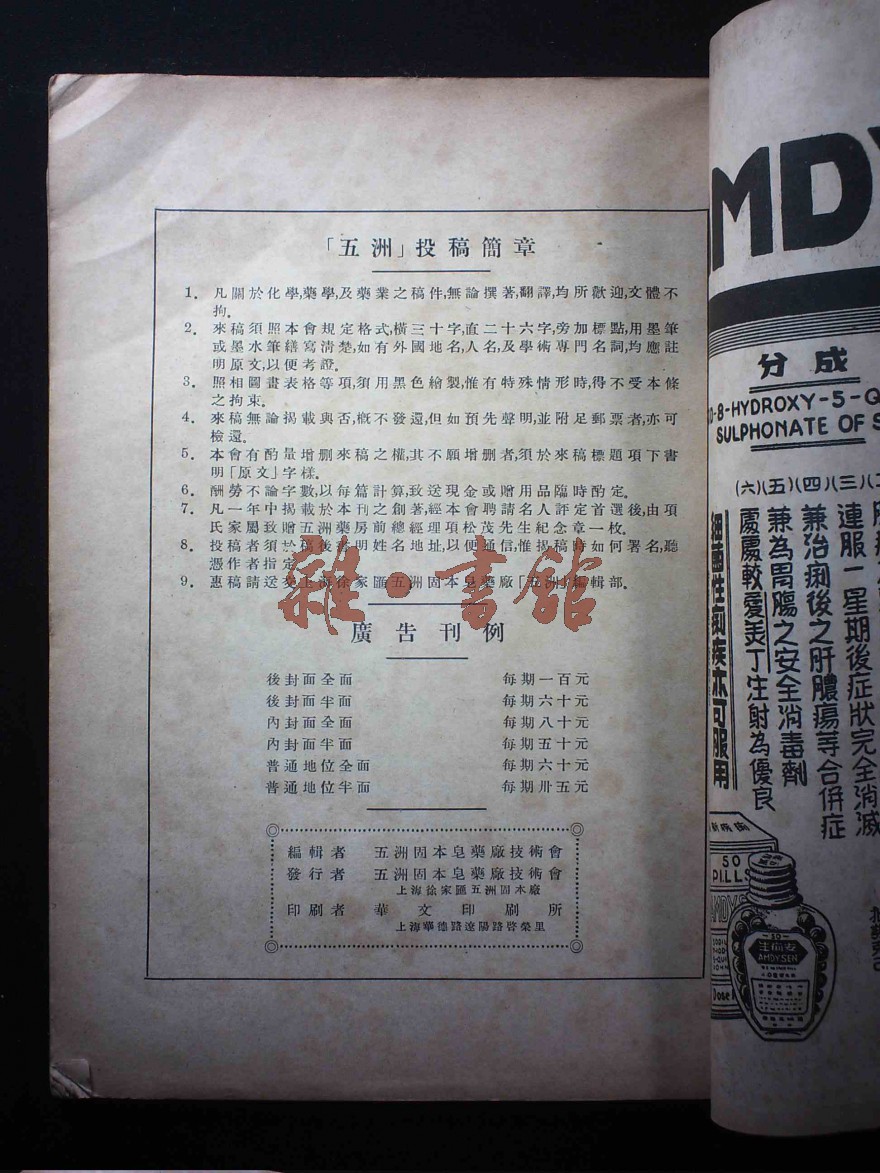 「五洲」投稿簡章
1. 凡關於化學,藥學,及藥業之稿件,無論撰著,翻譯,均所歡迎,文體不
拘。
2. 來稿須照本會規定格式,橫三十字,直二十六字,旁加標點,用墨筆
或墨水筆繕寫清楚,如有外國地名,人名,及學術專門名詞,均應註
明原文,以便考證。
3. 照相圖畫表格等項,須用黑色繪製,惟有特殊情形時,得不受本條
之拘束。
4. 來稿無論揭載與否,概不發還,但如預先聲明,並附足郵票者,亦可
檢還。
5. 本會有酌量增删來稿之權,其不願增删者,須於來稿標題項下書
明「原文」字樣。
6. 酬勞不論字數,以每篇計算,致送現金或贈用品臨時酌定。
7. 凡一年中揭載於本刊之創著,經本會聘請名人評定首選後,由項
氏家屬致贈五洲藥房前總經理項松茂先生紀念章一枚。
8. 投稿者須於稿後書明姓名地址,以便通信,惟揭稿時如何署名,聽
憑作者指定。
9. 惠稿請送交上海徐家匯五洲固本皂藥廠「五洲」編輯部。
雜·書館
廣告刊例
後封面全面 每期一百元
後封面半面 每期六十元
內封面全面 每期八十元
內封面半面 每期五十元
普通地位全面 每期六十元
普通地位半面 每期卅五元
編輯者 五洲固本皂藥廠技術會
發行者 五洲固本皂藥廠技術會
上海徐家匯五洲固本廠
印刷者 華文印刷所
上海華德路遼陽路啓榮里
MDY
分成
8-HYDROXY-5-Q
SULPHONATE OF S
(六)(五)(四)(三)(二)
連服一星期後症狀完全消滅
兼治痢後之肝膿瘍等合併症
兼為胃腸之安全消毒劑
處處較愛美丁注射為優良
細菌性痢疾亦可服用
50
PILLS
AMDYS
Dose
50
生痢安
AMDYSEN